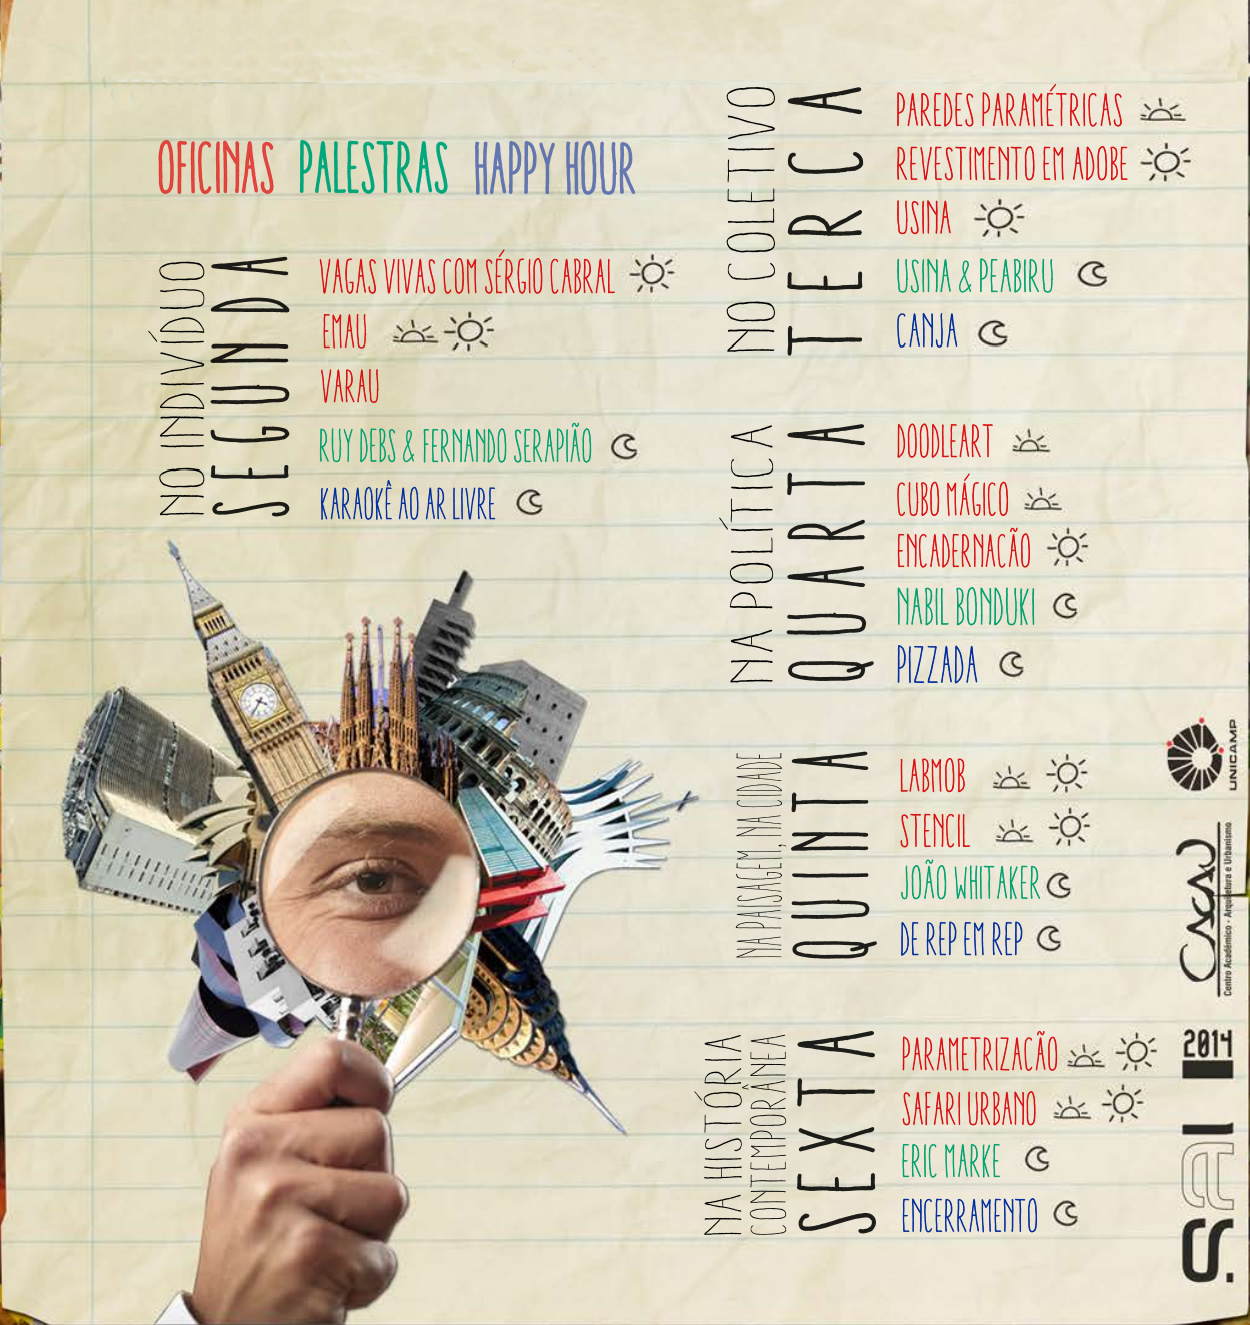 OFICINAS PALESTRAS HAPPY HOUR
NO INDIVÍDUO
SEGUNDA
VAGAS VIVAS COM SÉRGIO CABRAL
EMAU
VARAU
RUY DEBS & FERNANDO SERAPIÃO
KARAOKÊ AO AR LIVRE
NO COLETIVO
TERCA
PAREDES PARAMÉTRICAS
REVESTIMENTO EM ADOBE
USINA
USINA & PEABIRU
CANJA
NA POLÍTICA
QUARTA
DOODLEART
CUBO MÁGICO
ENCADERNACÃO
NABIL BONDUKI
PIZZADA
NA PAISAGEM, NA CIDADE
QUINTA
LABMOB
STENCIL
JOÃO WHITAKER
DE REP EM REP
NA HISTÓRIA
CONTEMPORÂNEA
SEXTA
PARAMETRIZACÃO
SAFARI URBANO
ERIC MARKE
ENCERRAMENTO
UNICAMP
CACAU
Centro Acadêmico - Arquitetura e Urbanismo
2014
S.aI